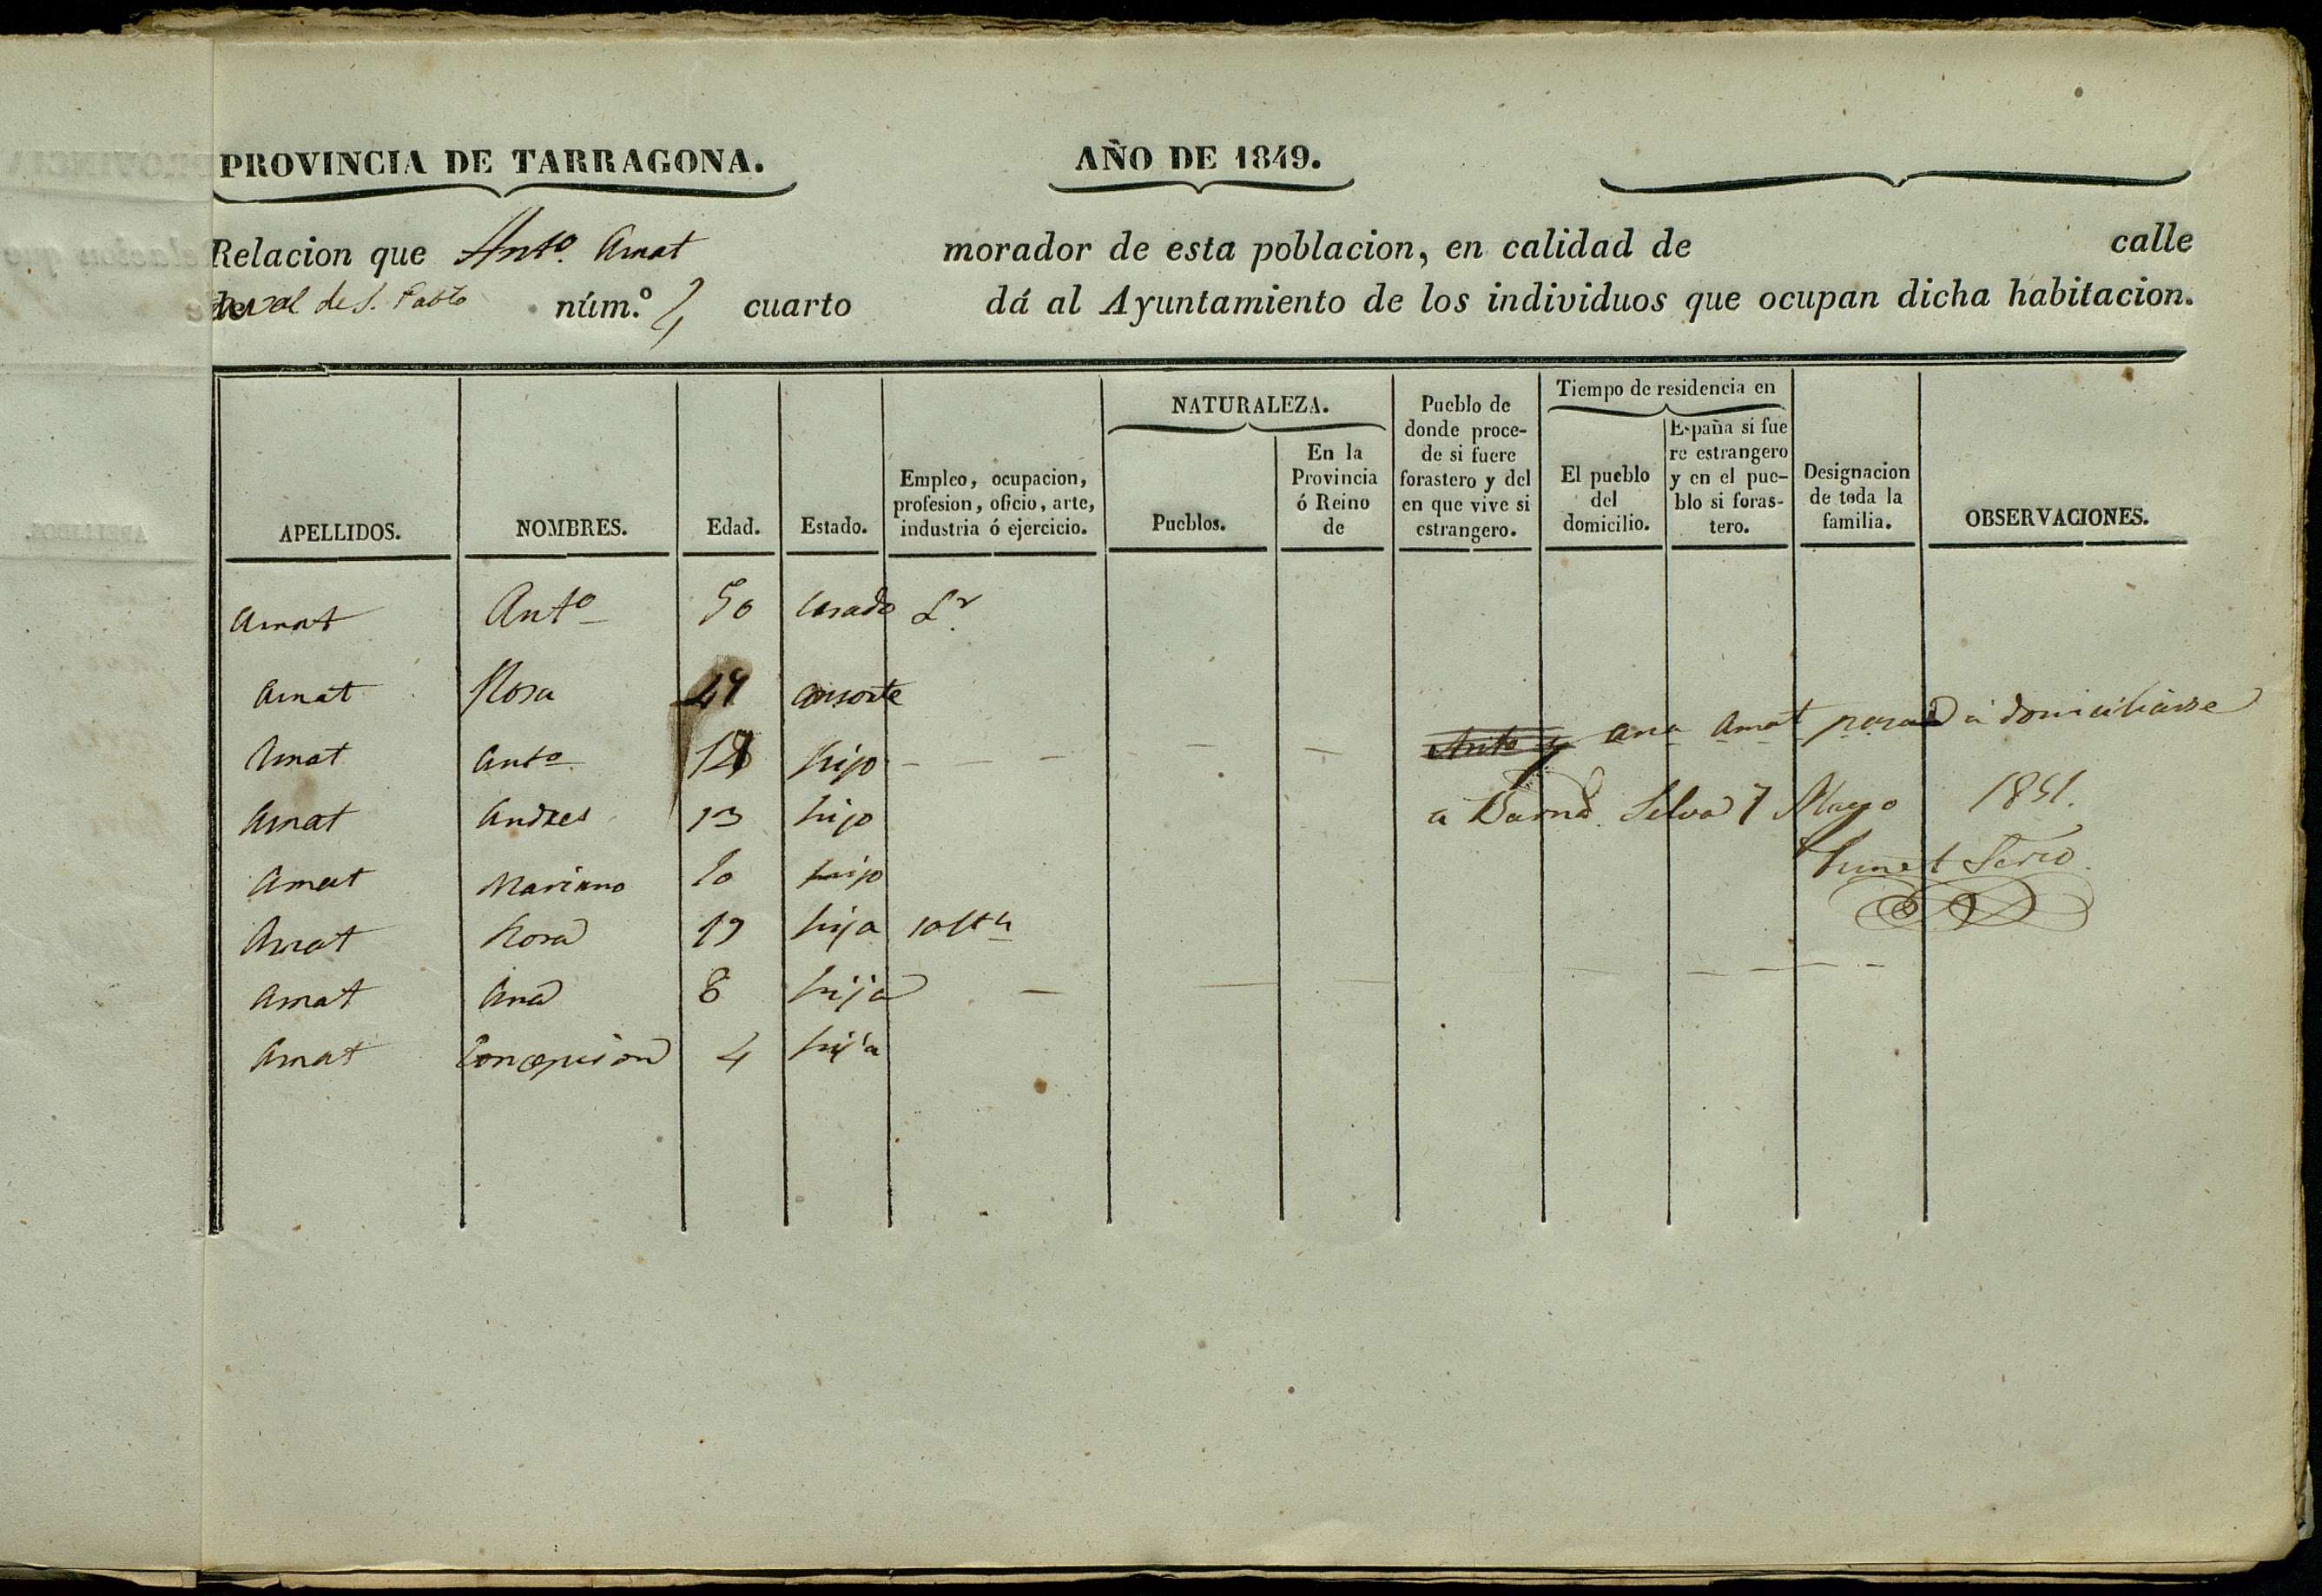 PROVINCIA DE TARRAGONA. AÑO DE 1849.
Relacion que Antº. Amat morador de esta poblacion, en calidad de calle
de Raval de S. Pablo núm.º cuarto dá al Ayuntamiento de los individuos que ocupan dicha habitacion.
APELLIDOS. NOMBRES. Edad. Estado. Empleo, ocupacion, profesion, oficio, arte, industria ó ejercicio. NATURALEZA. Pueblos. En la Provincia ó Reino de Pueblo de donde procede si fuere forastero y del en que vive si estrangero. Tiempo de residencia en El pueblo del domicilio. España si fuere estrangero y en el pueblo si forastero. Designacion de toda la familia. OBSERVACIONES.
Amat Antº 50 casado Lr.
Amat Rosa consorte
Amat Antº hijo
Anto y Ana Amat pasa á domiciliarse
Amat Andres 13 hijo
a Barna. Selva 7 Mayo 1851.
Amat Mariano 10 hijo
Amat Rosa 19 hija soltª
Amat Ana 8 hija
Amat Concepcion 4 hija